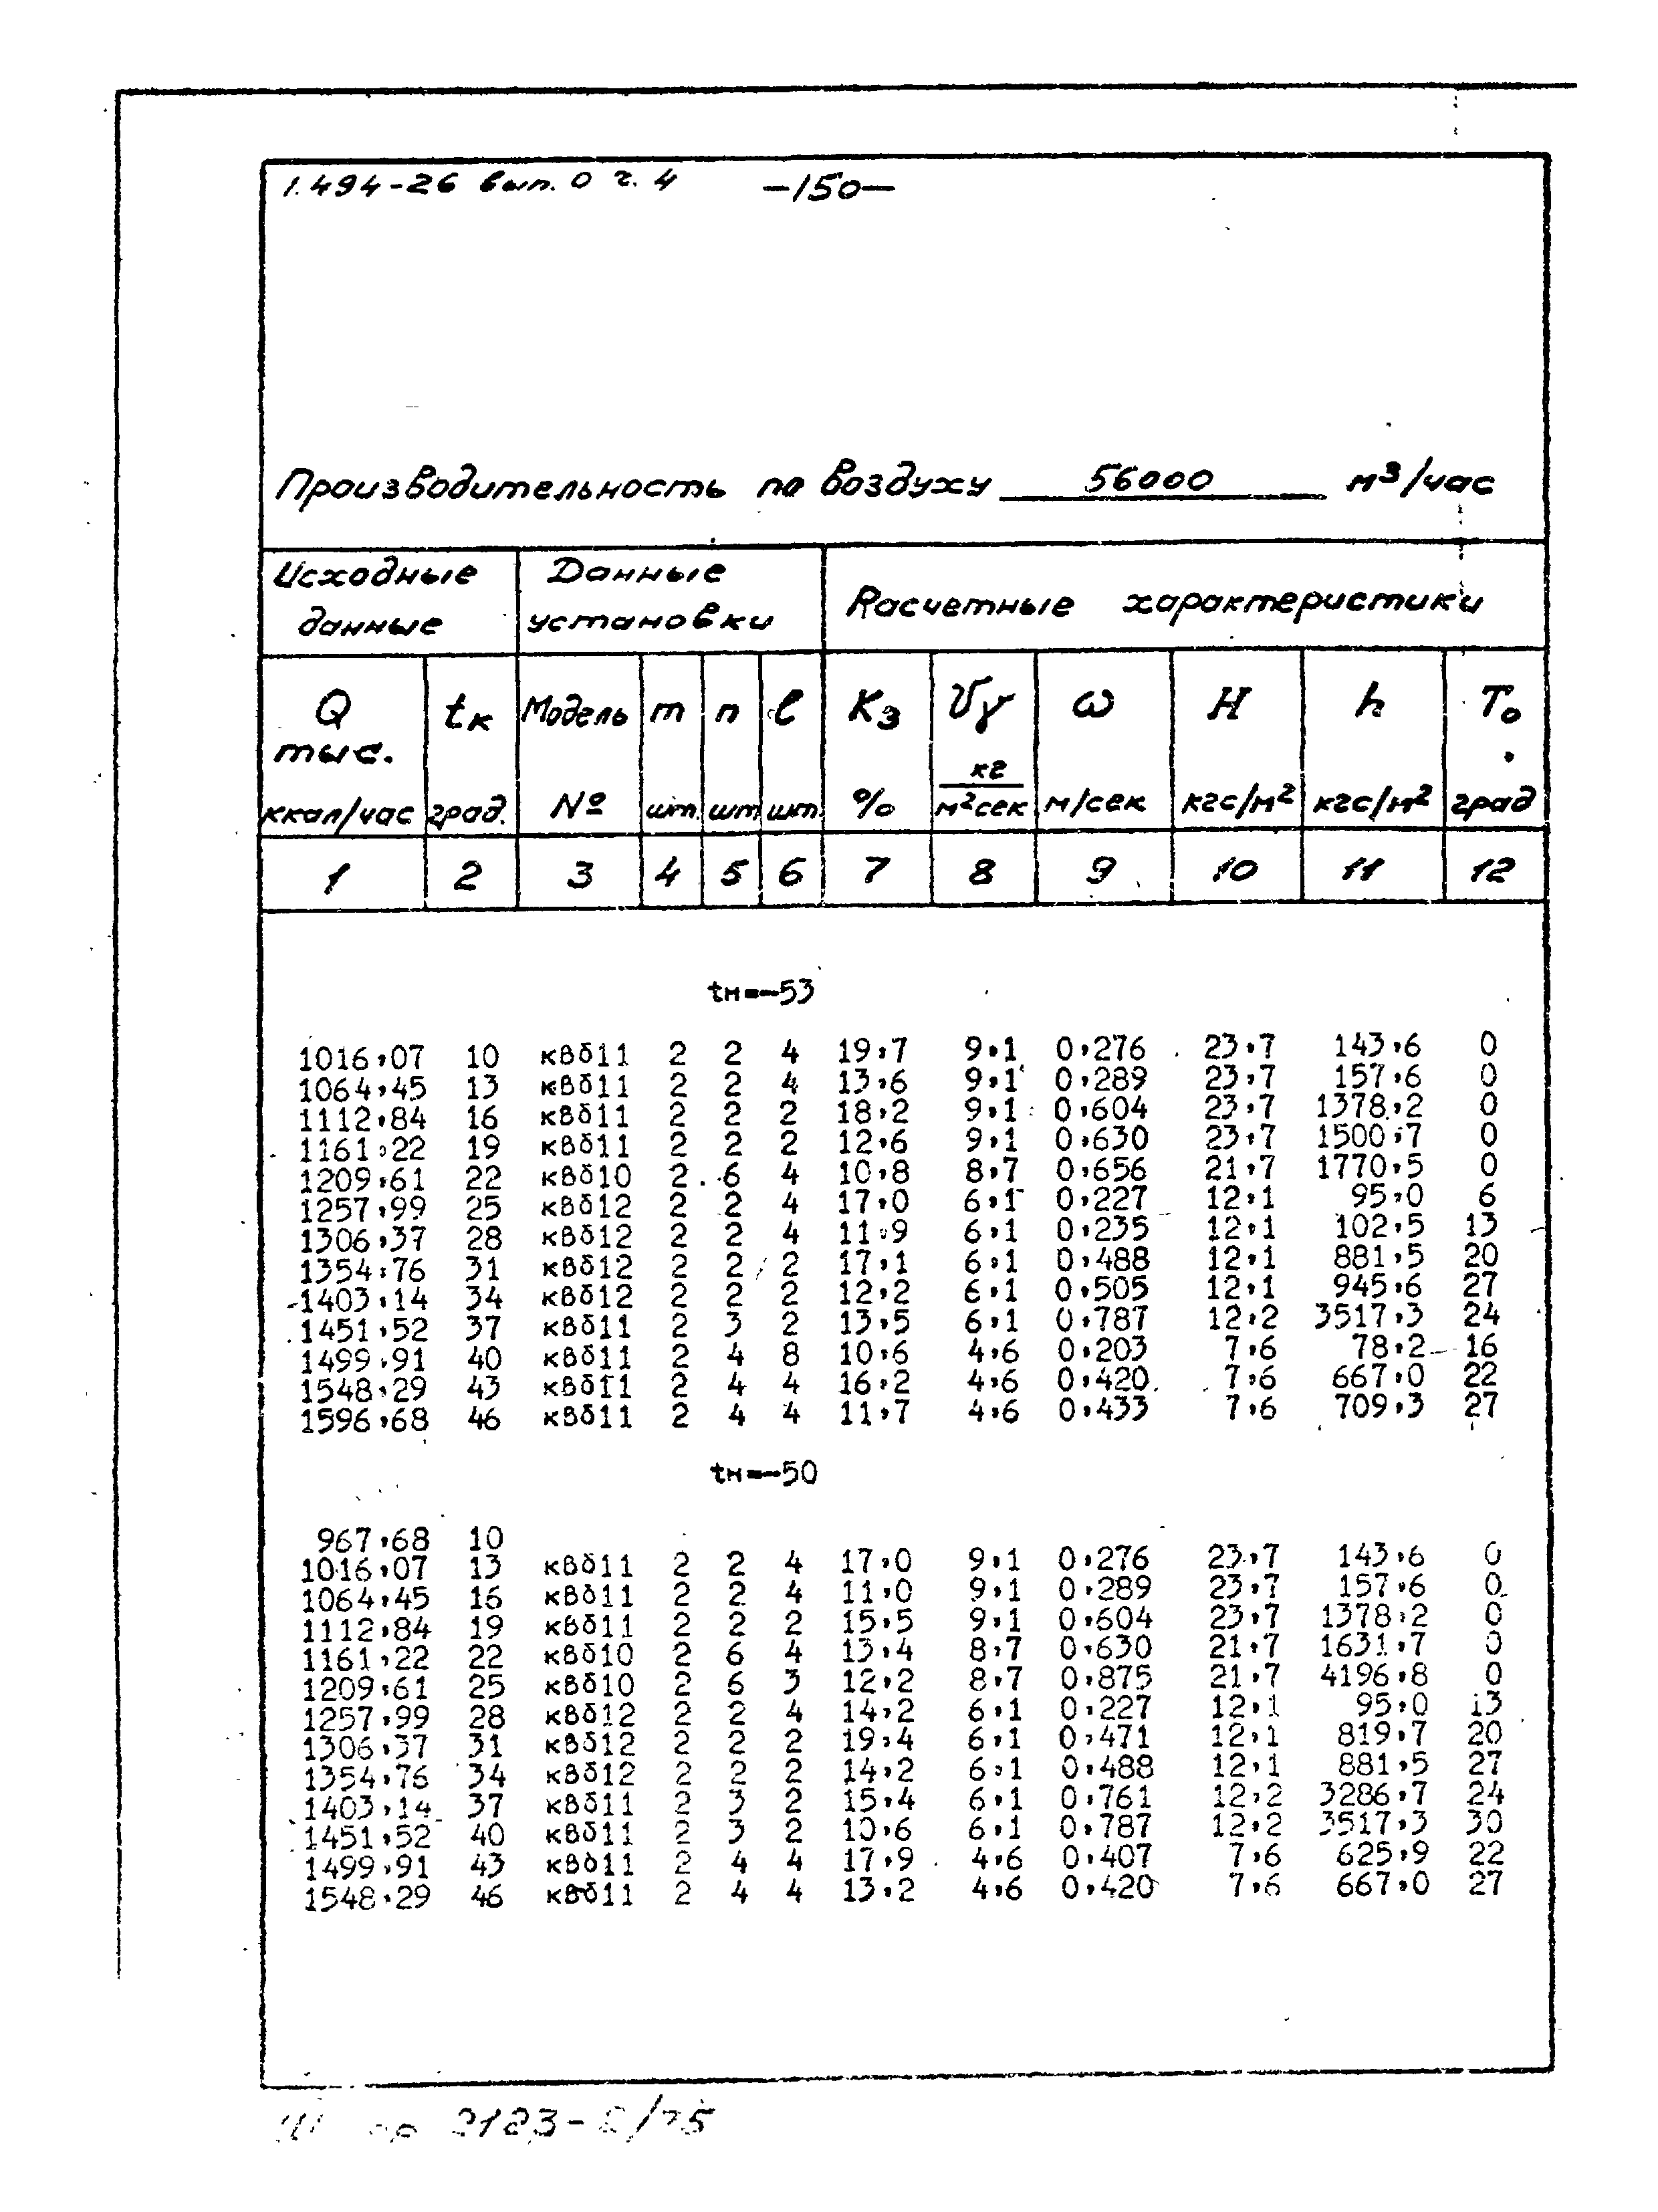 1.494-26 вып. 0 ч. 4 -150-
Производительность по воздуху 56000 м³/час
Исходные данные Данные установки Расчетные характеристики
Q тыс. ккал/час tк град. Модель № m шт. n шт l шт. Kз % Vγ кг/м²сек ω м/сек H кгс/м² h кгс/м² T₀ град
1 2 3 4 5 6 7 8 9 10 11 12
tн=-53
1016,07 10 квб11 2 2 4 19,7 9,1 0,276 23,7 143,6 0
1064,45 13 квб11 2 2 4 13,6 9,1 0,289 23,7 157,6 0
1112,84 16 квб11 2 2 2 18,2 9,1 0,604 23,7 1378,2 0
1161,22 19 квб11 2 2 2 12,6 9,1 0,630 23,7 1500,7 0
1209,61 22 квб10 2 6 4 10,8 8,7 0,656 21,7 1770,5 0
1257,99 25 квб12 2 2 4 17,0 6,1 0,227 12,1 95,0 6
1306,37 28 квб12 2 2 4 11,9 6,1 0,235 12,1 102,5 13
1354,76 31 квб12 2 2 2 17,1 6,1 0,488 12,1 881,5 20
1403,14 34 квб12 2 2 2 12,2 6,1 0,505 12,1 945,6 27
1451,52 37 квб11 2 3 2 13,5 6,1 0,787 12,2 3517,3 24
1499,91 40 квб11 2 4 8 10,6 4,6 0,203 7,6 78,2 16
1548,29 43 квб11 2 4 4 16,2 4,6 0,420 7,6 667,0 22
1596,68 46 квб11 2 4 4 11,7 4,6 0,433 7,6 709,3 27
tн=-50
967,68 10
1016,07 13 квб11 2 2 4 17,0 9,1 0,276 23,7 143,6 0
1064,45 16 квб11 2 2 4 11,0 9,1 0,289 23,7 157,6 0
1112,84 19 квб11 2 2 2 15,5 9,1 0,604 23,7 1378,2 0
1161,22 22 квб10 2 6 4 13,4 8,7 0,630 21,7 1631,7 0
1209,61 25 квб10 2 6 3 12,2 8,7 0,875 21,7 4196,8 0
1257,99 28 квб12 2 2 4 14,2 6,1 0,227 12,1 95,0 13
1306,37 31 квб12 2 2 2 19,4 6,1 0,471 12,1 819,7 20
1354,76 34 квб12 2 2 2 14,2 6,1 0,488 12,1 881,5 27
1403,14 37 квб11 2 3 2 15,4 6,1 0,761 12,2 3286,7 24
1451,52 40 квб11 2 3 2 10,6 6,1 0,787 12,2 3517,3 30
1499,91 43 квб11 2 4 4 17,9 4,6 0,407 7,6 625,9 22
1548,29 46 квб11 2 4 4 13,2 4,6 0,420 7,6 667,0 27